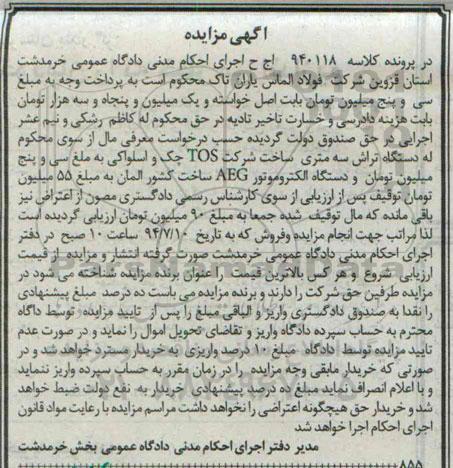 آگهی مزایده
در پرونده کلاسه ۹۴۰۱۱۸ اج ح اجرای احکام مدنی دادگاه عمومی خرمدشت
استان قزوین شرکت فولاد الماس یاران تاک محکوم است به پرداخت وجه به مبلغ
سی و پنج میلیون تومان بابت اصل خواسته و یک میلیون و پنجاه و سه هزار تومان
بابت هزینه دادرسی و خسارت تاخیر تادیه در حق محکوم له کاظم رشکی و نیم عشر
اجرایی در حق صندوق دولت گردیده حسب درخواست معرفی مال از سوی محکوم
له دستگاه تراش سه متری ساخت شرکت TOS چک و اسلواکی به ملغ سی و پنج
میلیون تومان و دستگاه الکتروموتور AEG ساخت کشور المان به مبلغ ۵۵ میلیون
تومان توقیف پس از ارزیابی از سوی کارشناس رسمی دادگستری مصون از اعتراض نیز
باقی مانده که مال توقیف شده جمعا به مبلغ ۹۰ میلیون تومان ارزیابی گردیده است
لذا مراتب جهت انجام مزایده وفروش که به تاریخ ۹۴/۷/۱۰ ساعت ۱۰ صبح در دفتر
اجرای احکام مدنی دادگاه عمومی خرمدشت صورت گرفته انتشار و مزایده از قیمت
ارزیابی شروع و هر کس بالاترین قیمت را عنوان برنده مزایده شناخته می شود در
مزایده طرفین حق شرکت را دارند و برنده مزایده می باست ده درصد مبلغ پیشنهادی
را نقدا به صندوق دادگستری واریز و الباقی مبلغ را پس از تایید مزایده توسط داگاه
محترم به حساب سپرده دادگاه واریز و تقاضای تحویل اموال را نماید و در صورت عدم
تایید مزایده توسط دادگاه مبلغ ۱۰ درصد واریزی به خریدار مسترد خواهد شد و در
صورتی که خریدار مابقی وجه مزایده را در زمان مقرر به حساب سپرده واریز ننماید
و با اعلام انصراف نماید مبلغ ده درصد پیشنهادی خریدار به نفع دولت ضبط خواهد
شد و خریدار حق هیچگونه اعتراضی را نخواهد داشت مراسم مزایده با رعایت مواد قانون
اجرای احکام اجرا خواهد شد
مدیر دفتر اجرای احکام مدنی دادگاه عمومی بخش خرمدشت
۸۵۵